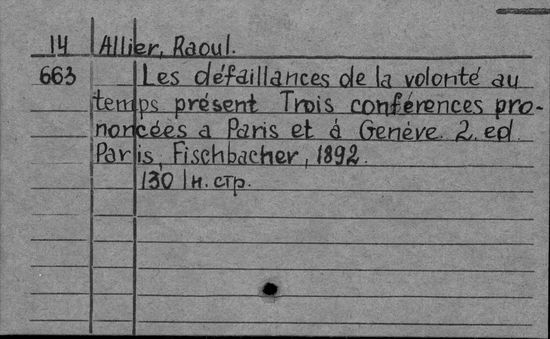 14 Allier, Raoul.
663 Les défaillances de la volonté au
temps présent Trois conférences pro-
noncées a Paris et à Genève. 2. ed.
Paris, Fischbacher, 1892.
130 1 н. стр.